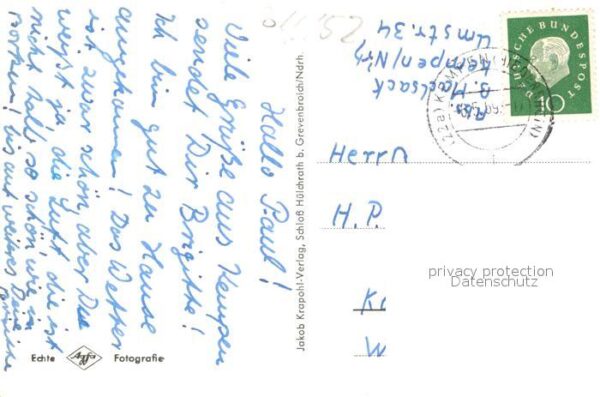 Hallo Paul!
Viele Grüße aus Kempen
sendet Dir Brigitte!
Ich bin gut zu Hause
angekommen! Das Wetter
ist zwar schön, aber Du
weißt ja die Luft die ist
nicht halb so schön, wie in
bis auf weiteres Deine
Brigitte
Echte Agfa Fotografie
Jakob Krapohl-Verlag, Schloß Hülchrath b. Grevenbroich/Ndrh.
Kempen/Ndrh
Umstr. 34
DEUTSCHE BUNDESPOST
10
Herrn
H. P.
Kr
W
privacy protection
Datenschutz